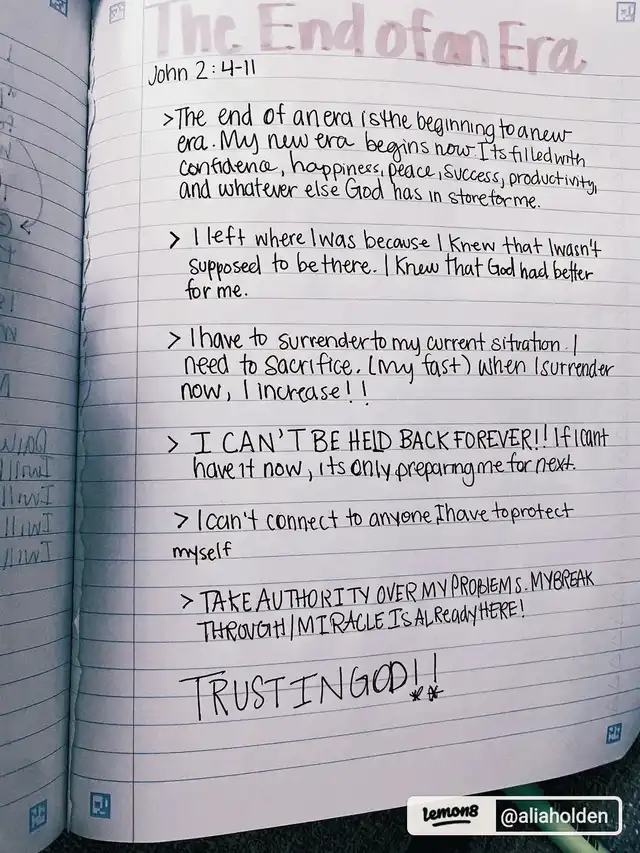 The End of an Era
John 2:4-11
>The end of an era is the beginning to a new
era. My new era begins now. Its filled with
confidence, happiness, peace, success, productivity,
and whatever else God has in store for me.
> I left where I was because I knew that I wasn't
supposed to be there. I knew that God had better
for me.
> I have to surrender to my current situation. I
need to sacrifice. (my fast) when I surrender
now, I increase!!
> I CAN'T BE HELD BACK FOREVER!! If I cant
have it now, its only preparing me for next.
> I can't connect to anyone, I have to protect
myself
> TAKE AUTHORITY OVER MY PROBLEMS. MY BREAK
THROUGH/MIRACLE IS ALREADY HERE!
TRUST IN GOD!!
lemon8 @aliaholden